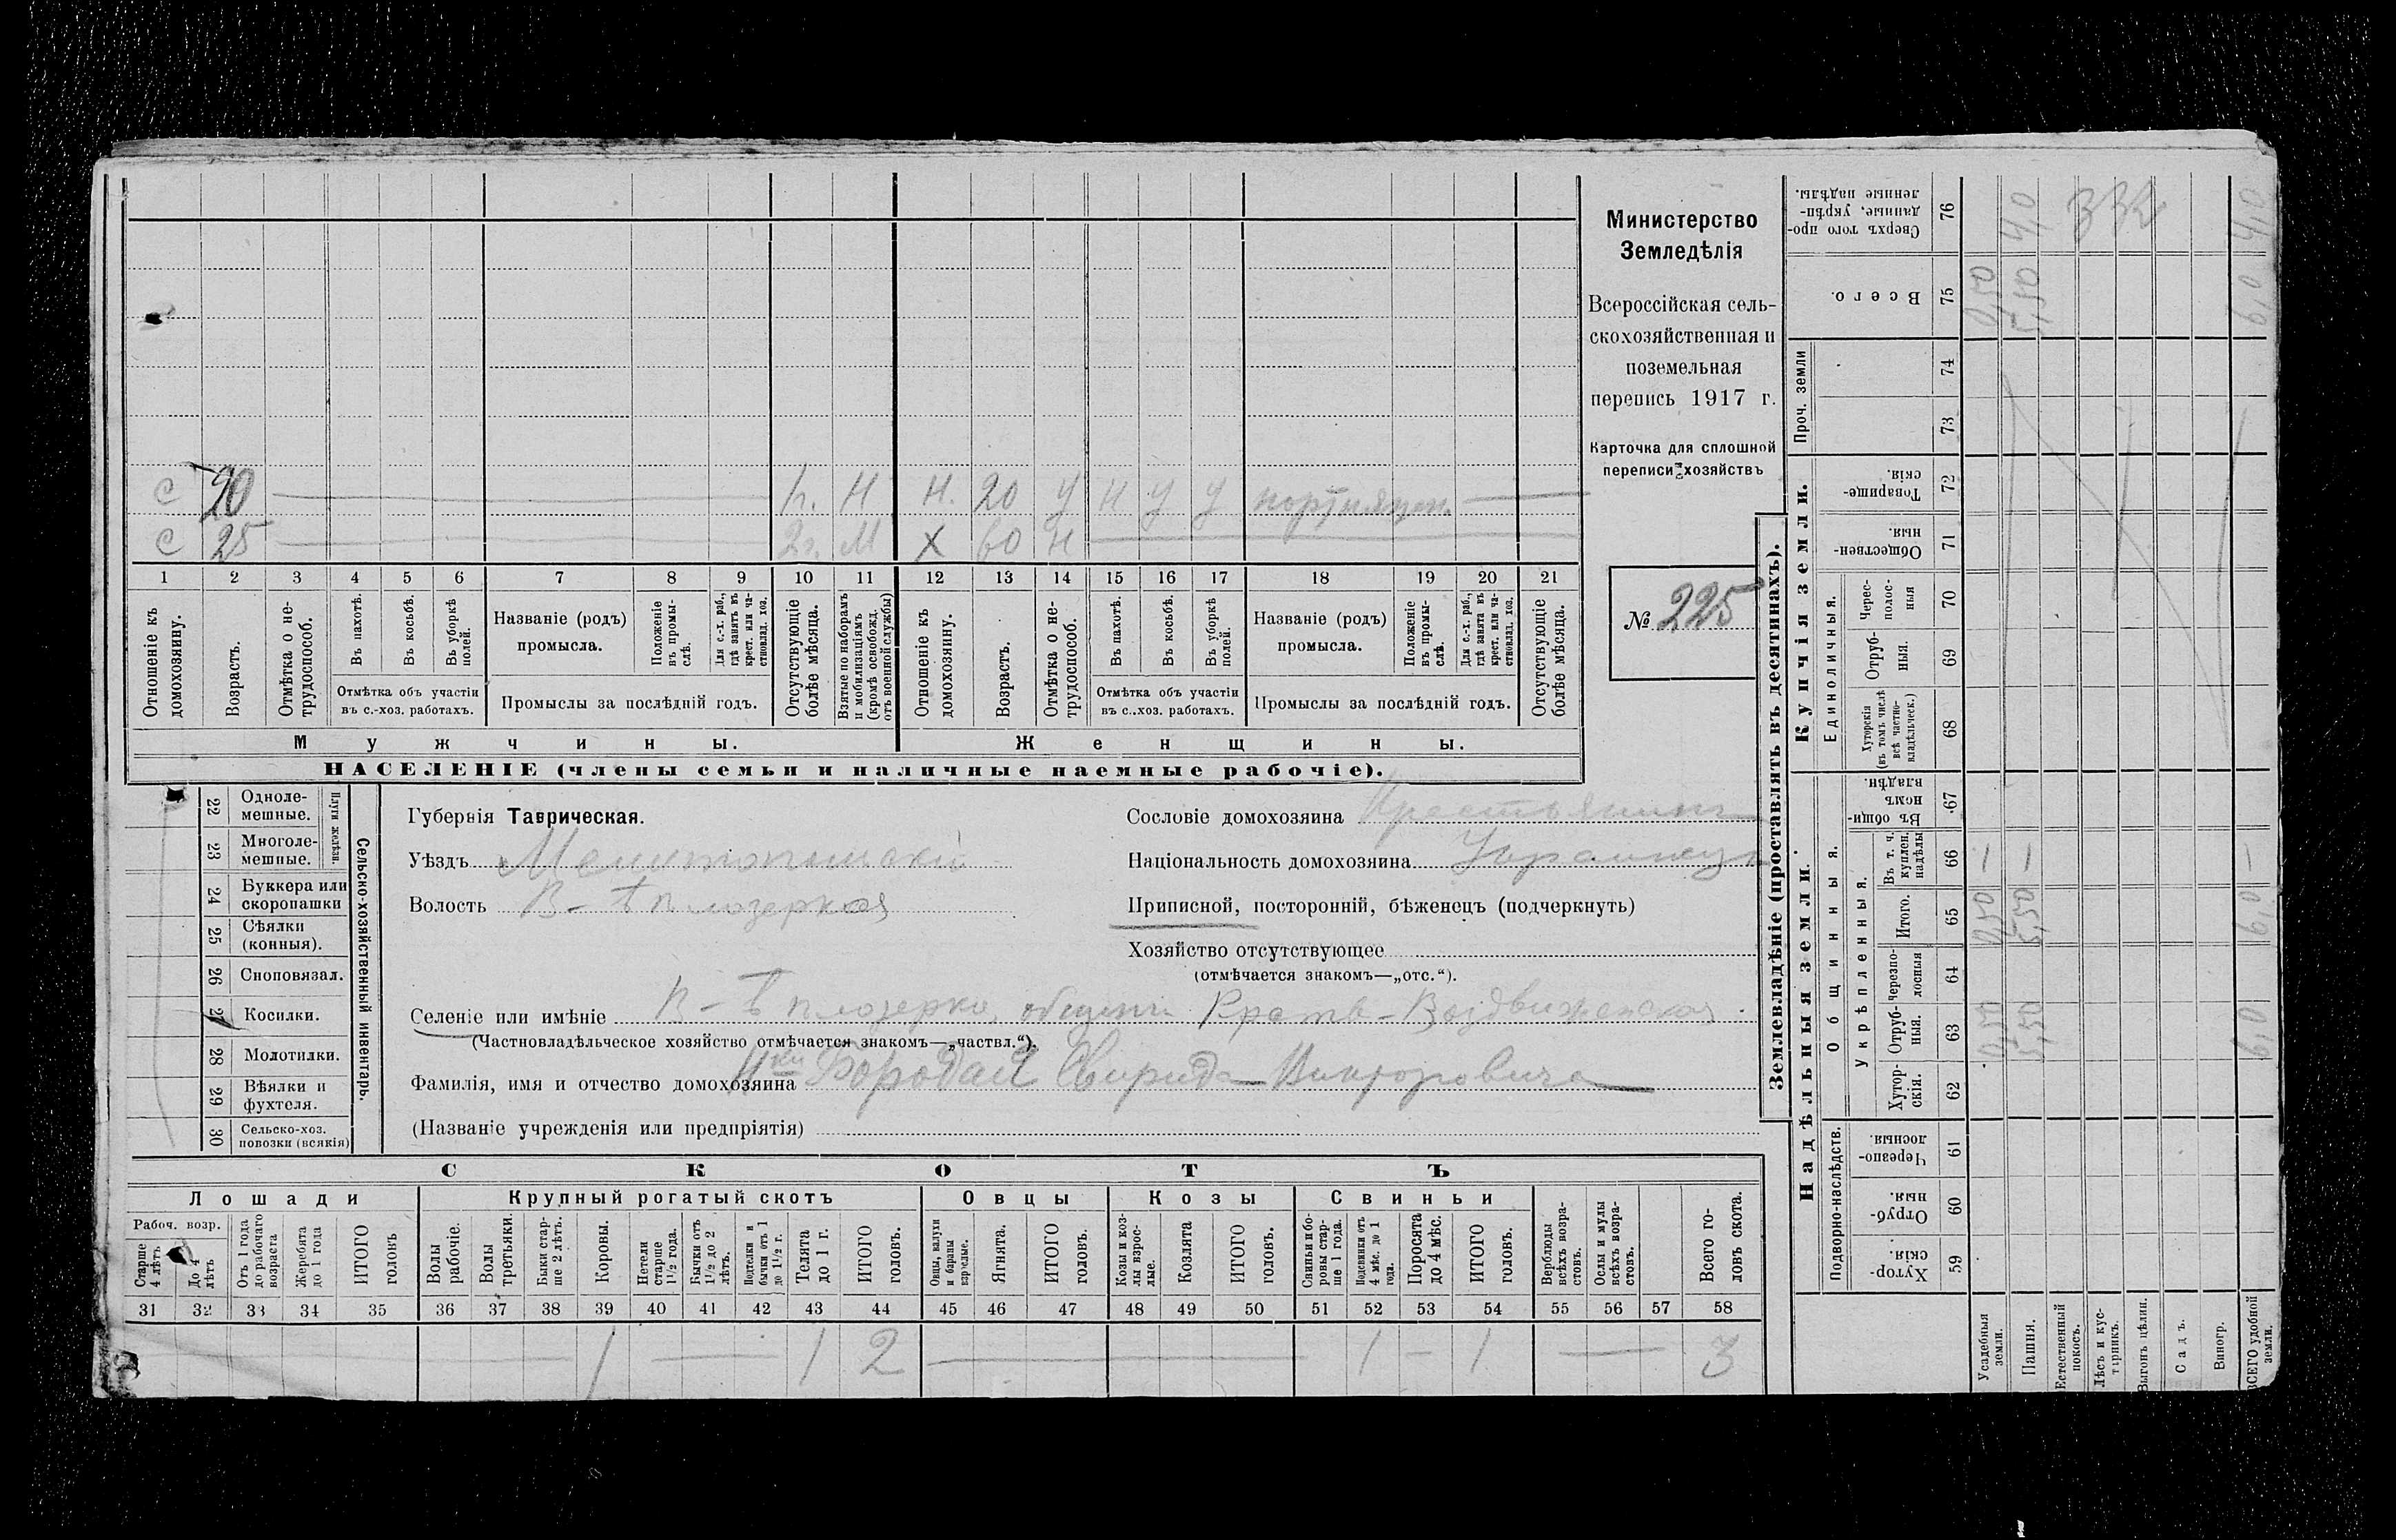 С 20 п. Н Н. 20 У Н У У портняжн.
С 25 2 г. М Х 60 Н
1 2 3 4 5 6 7 8 9 10 11 12 13 14 15 16 17 18 19 20 21
Отношеніе къ домохозяину.
Возрастъ.
Отмѣтка о не-
трудоспособ.
Въ пахотѣ.
Въ косьбѣ.
Въ уборкѣ
полей.
Отмѣтка объ участіи
въ с.-хоз. работахъ.
Названіе (родъ)
промысла.
Положеніе
въ промы-
слѣ.
Для с.-х. раб.,
гдѣ занятъ въ
крест. или ча-
стновлад. хоз.
Промыслы за послѣдній годъ.
Отсутствующіе
болѣе мѣсяца.
Взятые по наборамъ
и мобилизаціямъ
(кромѣ освобожд.
отъ военной службы)
Отношеніе къ
домохозяину.
Возрастъ.
Отмѣтка о не-
трудоспособ.
Въ пахотѣ.
Въ косьбѣ.
Въ уборкѣ
полей.
Отмѣтка объ участіи
въ с..хоз. работахъ.
Названіе (родъ)
промысла.
Положеніе
въ промы-
слѣ.
Для с.-х. раб.,
гдѣ занята въ
крест. или ча-
стновлад. хоз.
Промыслы за послѣдній годъ.
Отсутствующіе
болѣе мѣсяца.
Мужчины.
Женщины.
НАСЕЛЕНІЕ (члены семьи и наличные наемные рабочіе).
Министерство
Земледѣлія
Всероссійская сель-
скохозяйственная и
поземельная
перепись 1917 г.
Карточка для сплошной
переписи хозяйствъ
№ 225
22 Одноле-
мешные.
23 Многоле-
мешные.
Плуги желѣзн.
24 Буккера или
скоропашки
25 Сѣялки
(конныя).
26 Сноповязал.
27 Косилки.
28 Молотилки.
29 Вѣялки и
фухтеля.
30 Сельско-хоз.
повозки (всякія)
Сельско-хозяйственный инвентарь.
Губернія Таврическая.
Уѣздъ Мелитопольскій
Волость В-Бѣлозерская
Селеніе или имѣніе В-Бѣлозерка, общины Кресто-Воздвиженская
(Частновладѣльческое хозяйство отмѣчается знакомъ—„частвл.“).
Фамилія, имя и отчество домохозяина Н-ки Бородай Свирида Викторовича
(Названіе учрежденія или предпріятія)
Сословіе домохозяина Крестьянинъ
Національность домохозяина Украинецъ
Приписной, посторонній, бѣженецъ (подчеркнуть)
Хозяйство отсутствующее
(отмѣчается знакомъ—„отс.“).
СКОТЪ
Лошади
Рабоч. возр.
Старше
4 лѣтъ
До 4
лѣтъ
Отъ 1 года
до рабочаго
возраста
Жеребята
до 1 года
ИТОГО
головъ
Крупный рогатый скотъ
Волы
рабочіе.
Волы
третьяки.
Быки стар-
ше 2 лѣтъ.
Коровы.
Нетели
старше
1½ года.
Бычки отъ
1½ до 2
лѣтъ.
Подтелки и
бычки отъ 1
до 1½ г.
Телята
до 1 г.
ИТОГО
головъ.
Овцы
Овцы, валухи
и бараны
взрослые.
Ягнята.
ИТОГО
головъ.
Козы
Козы и коз-
лы взрос-
лые.
Козлята
ИТОГО
головъ.
Свиньи
Свиньи и бо-
ровы стар-
ше 1 года.
Подсвинки отъ
4 мѣс. до 1
года.
Поросята
до 4 мѣс.
ИТОГО
головъ.
Верблюды
всѣхъ возра-
стовъ.
Ослы и мулы
всѣхъ возра-
стовъ.
Всего го-
ловъ скота.
31 32 33 34 35 36 37 38 39 40 41 42 43 44 45 46 47 48 49 50 51 52 53 54 55 56 57 58
1 1 2 1 1 3
Землевладѣніе (проставлять въ десятинахъ).
Купчія земли.
Надѣльныя земли.
Сверхъ того про-
данные, укрѣп-
ленные надѣлы.
76 4,0 332 4,0
Всего.
75 0,50 5,50 6,0
Проч. земли
74
73
Товарище-
скія.
72
Обществен-
ныя.
71
Единоличныя.
Черес-
полос-
ныя
70
Отруб-
ныя.
69
Хуторскія
(въ томъ числѣ
всѣ частно-
владѣльческ.)
68
Общинныя.
Въ общи-
номъ
владѣн.
67
Укрѣпленныя.
Въ т. ч.
куплен.
надѣлы
66
Итого.
65 0,50 5,50 6,0
Черезпо-
лосныя
64
Отруб-
ныя.
63 0,50 5,50 6,0
Хутор-
скія.
62
Подворно-наслѣдств.
Черезпо-
лосныя.
61
Отруб-
ныя.
60
Хутор-
скія.
59
Усадебныя
земли.
Пашня.
Естественный
покосъ.
Лѣсъ и кус-
тарникъ.
Выгонъ цѣлин.
Садъ.
Виногр.
ВСЕГО удобной
земли.